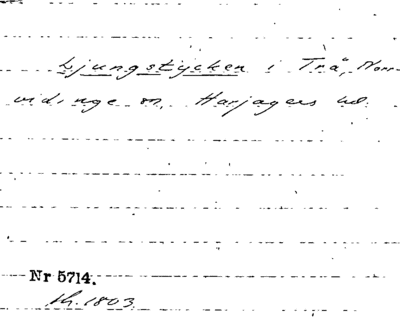 Ljungstycken i Trå, Norr-
vidinge sn, Harjagers hd.
Nr 5714.
1803.